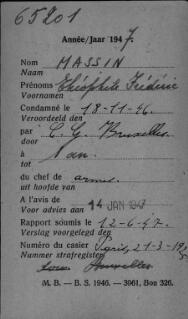 65201
Année/Jaar 1947.
Nom MASSIN
Naam
Prénoms Théophile Frédéric
Voornamen
Condamné le 18-11-46.
Veroordeeld den
par C. G. Bruxelles
door
à 1 an.
tot
du chef de armes.
uit hoofde van
A l'avis de
Voor advies aan 14 JAN 1947
Rapport soumis le 12-6-47.
Verslag voorgelegd den
Numéro du casier Paris, 21-3-19
Nummer strafregister
Bruxelles
M. B. — B. S. 1946. — 3061, Bon 326.